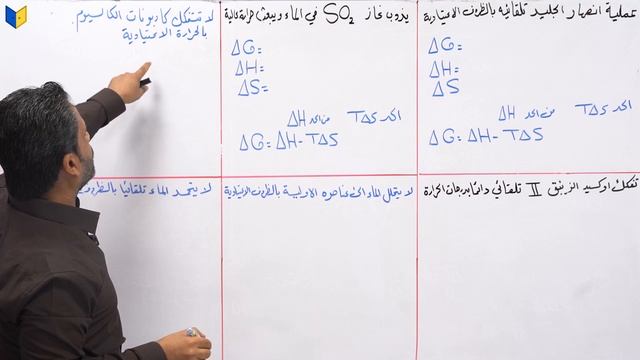 عملية انصهار الجليد تلقائيه بالظروف الاعتيادية
ΔG=
ΔH=
ΔS
TΔS اكبر من ΔH
ΔG=ΔH-TΔS
يذوب غاز SO₂ في الماء ويبعث حرارة عالية
ΔG=
ΔH=
ΔS=
TΔS اكبر من ΔH
ΔG=ΔH-TΔS
لا تتفكك كاربونات الكالسيوم
بالحرارة الاعتيادية
تفكك اوكسيد الزئبق II تلقائي دائما بدرجات الحرارة
لا يتحلل الماء الى عناصره الاولية بالظروف الاعتيادية
لا يتجمد الماء تلقائيا بالظروف